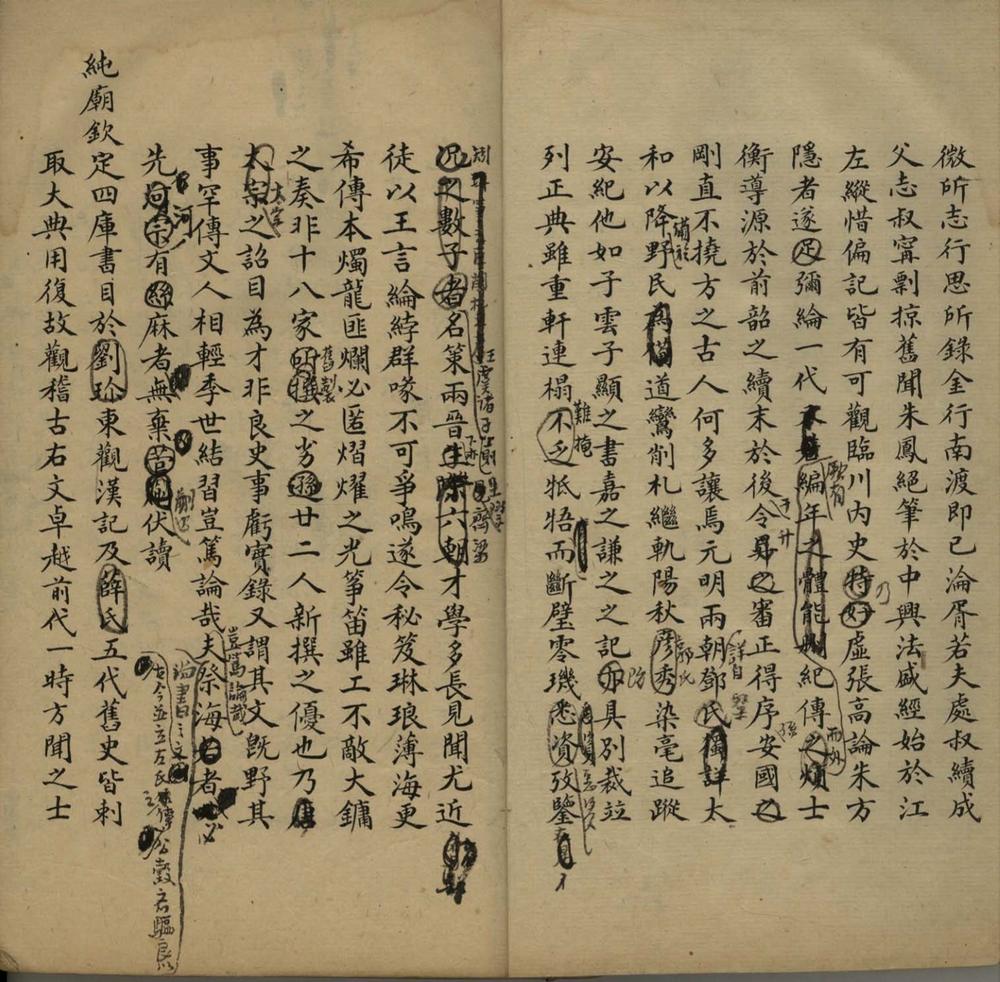 微所志行思所錄金行南渡即已淪胥若夫處叔續成
父志叔甯剽掠舊聞朱鳳絕筆於中興法盛經始於江
左縱惜偏記皆有可觀臨川內史特好虛張高論朱方
乃
隱者遂足彌綸一代編年之體能刪紀傳之煩士
厥有
而刪
衡導源於前韶之續末於後令昇之審正得序安國之
于廾
孫
剛直不撓方之古人何多讓焉元明兩朝鄧氏獨詳太
詳自
和以降野民為備道鸞削札繼軌陽秋彥秀染毫追蹤
郭氏
安紀他如子雲子顯之書嘉之謙之之記亦具別裁竝
防
列正典雖重軒連榻不乏牴牾而斷璧零璣悉資攷鑒
難掩
況之數子者名策兩晉生際六朝才學多長見聞尤近
徒以王言綸綍群喙不可爭鳴遂令秘笈琳琅薄海更
希傳本燭龍匪爛必匿熠燿之光箏笛雖工不敵大鏞
之奏非十八家所撰之劣孫廿二人新撰之優也乃
舊製
太宗之詔目為才非良史事虧實錄又謂其文既野其
事罕傳文人相輕季世結習豈篤論哉夫祭海者必
豈篤論哉
先河宗有絲麻者無棄菅蒯伏讀
河
古今竝立左氏傳公穀
純廟欽定四庫書目於劉珍東觀漢記及薛氏五代舊史皆刺
取大典用復故觀稽古右文卓越前代一時方聞之士